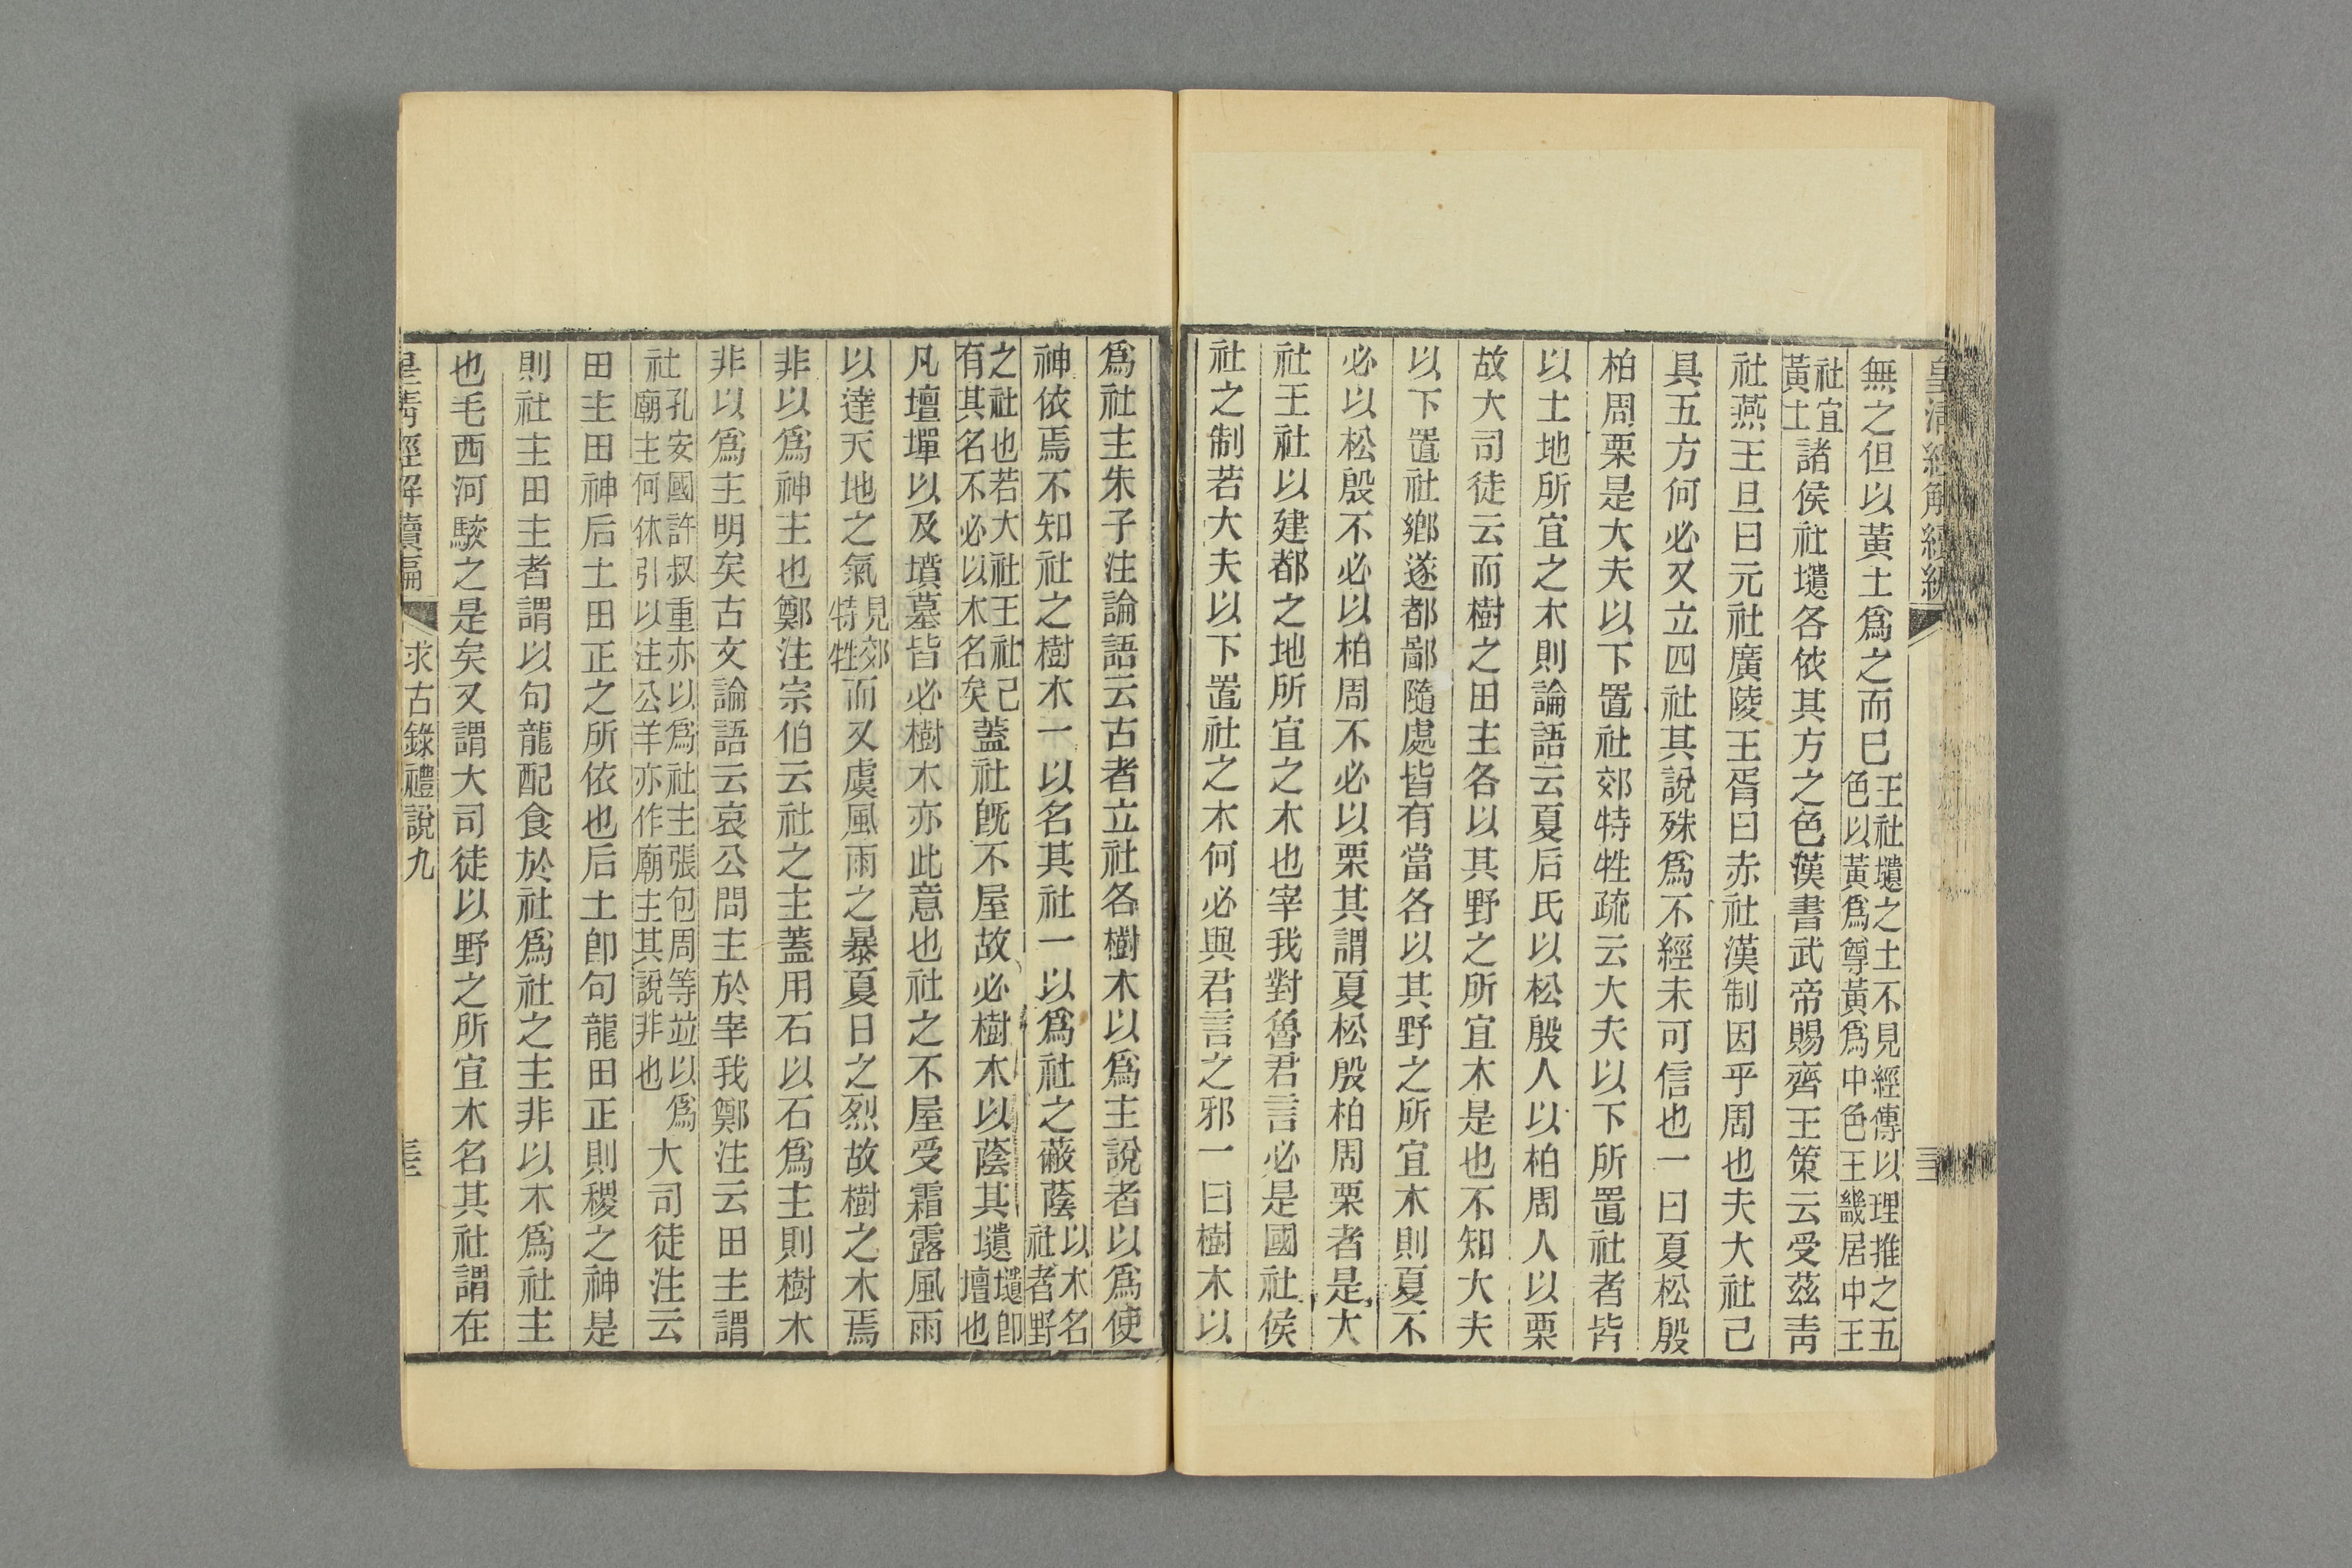 皇清經解續編
無之但以黃土爲之而已王社壝之土不見經傳以理推之五色以黃爲尊黃爲中色王畿居中王
社宜黃土諸侯社壝各依其方之色漢書武帝賜齊王策云受茲靑
社燕王旦曰元社廣陵王胥曰赤社漢制因乎周也夫大社已
具五方何必又立四社其說殊爲不經未可信也一曰夏松殷
柏周栗是大夫以下置社郊特牲疏云大夫以下所置社者皆
以土地所宜之木則論語云夏后氏以松殷人以柏周人以栗
故大司徒云而樹之田主各以其野之所宜木是也不知大夫
以下置社鄉遂都鄙隨處皆有當各以其野之所宜木則夏不
必以松殷不必以柏周不必以栗其謂夏松殷柏周栗者是大
社王社以建都之地所宜之木也宰我對魯君言必是國社侯
社之制若大夫以下置社之木何必與君言之邪一曰樹木以
爲社主朱子注論語云古者立社各樹木以爲主說者以爲使
神依焉不知社之樹木一以名其社一以爲社之蔽蔭以木名社者野
之社也若大社王社已有其名不必以木名矣蓋社旣不屋故必樹木以蔭其壝壝卽壇也
凡壇墠以及墳墓皆必樹木亦此意也社之不屋受霜露風雨
以達天地之氣見郊特牲而又虞風雨之暴夏日之烈故樹之木焉
非以爲神主也鄭注宗伯云社之主蓋用石以石爲主則樹木
非以爲主明矣古文論語云哀公問主於宰我鄭注云田主謂
社孔安國許叔重亦以爲社主張包周等竝以爲廟主何休引以注公羊亦作廟主其說非也大司徒注云
田主田神后土田正之所依也后土卽句龍田正則稷之神是
則社主田主者謂以句龍配食於社爲社之主非以木爲社主
也毛西河駮之是矣又謂大司徒以野之所宜木名其社謂在
皇清經解續編
求古錄禮說九